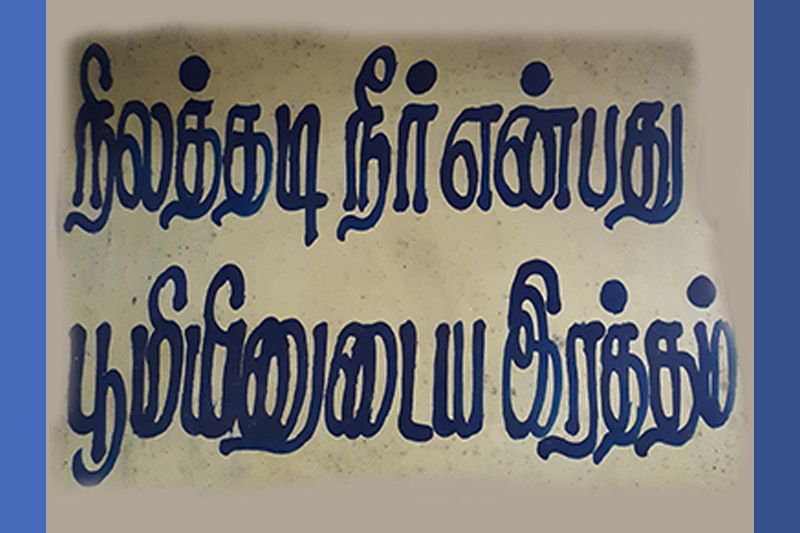 நிலத்தடி நீர் என்பது
பூமியினுடைய இரத்தம்